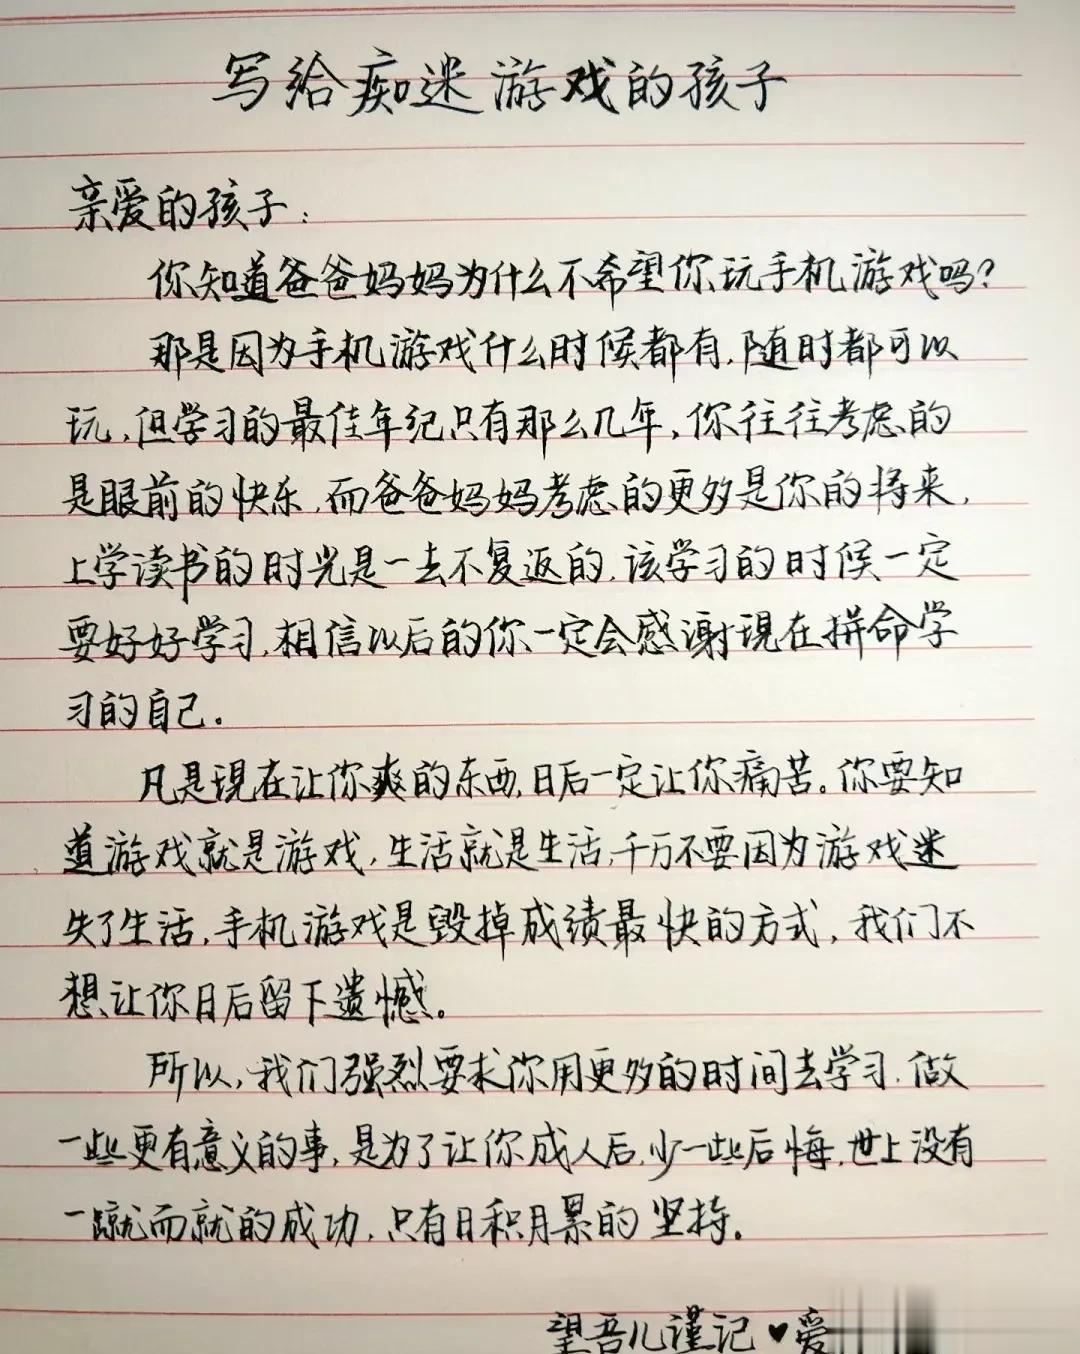 写给痴迷游戏的孩子
亲爱的孩子:
你知道爸爸妈妈为什么不希望你玩手机游戏吗?
那是因为手机游戏什么时候都有,随时都可以
玩,但学习的最佳年纪只有那么几年,你往往考虑的
是眼前的快乐,而爸爸妈妈考虑的更多是你的将来,
上学读书的时光是一去不复返的,该学习的时候一定
要好好学习,相信以后的你一定会感谢现在拼命学
习的自己.
凡是现在让你爽的东西,日后一定让你痛苦。你要知
道游戏就是游戏,生活就是生活,千万不要因为游戏迷
失了生活,手机游戏是毁掉成绩最快的方式,我们不
想让你日后留下遗憾。
所以,我们强烈要求你用更多的时间去学习,做
一些更有意义的事,是为了让你成人后,少一些后悔,世上没有
一蹴而就的成功,只有日积月累的坚持。
望吾儿谨记♥爱